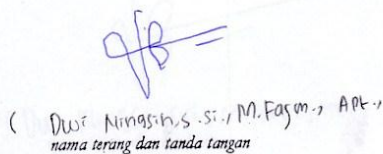 ( Dwi Ningsih, S.Si., M.Farm., Apt.,
nama terang dan tanda tangan